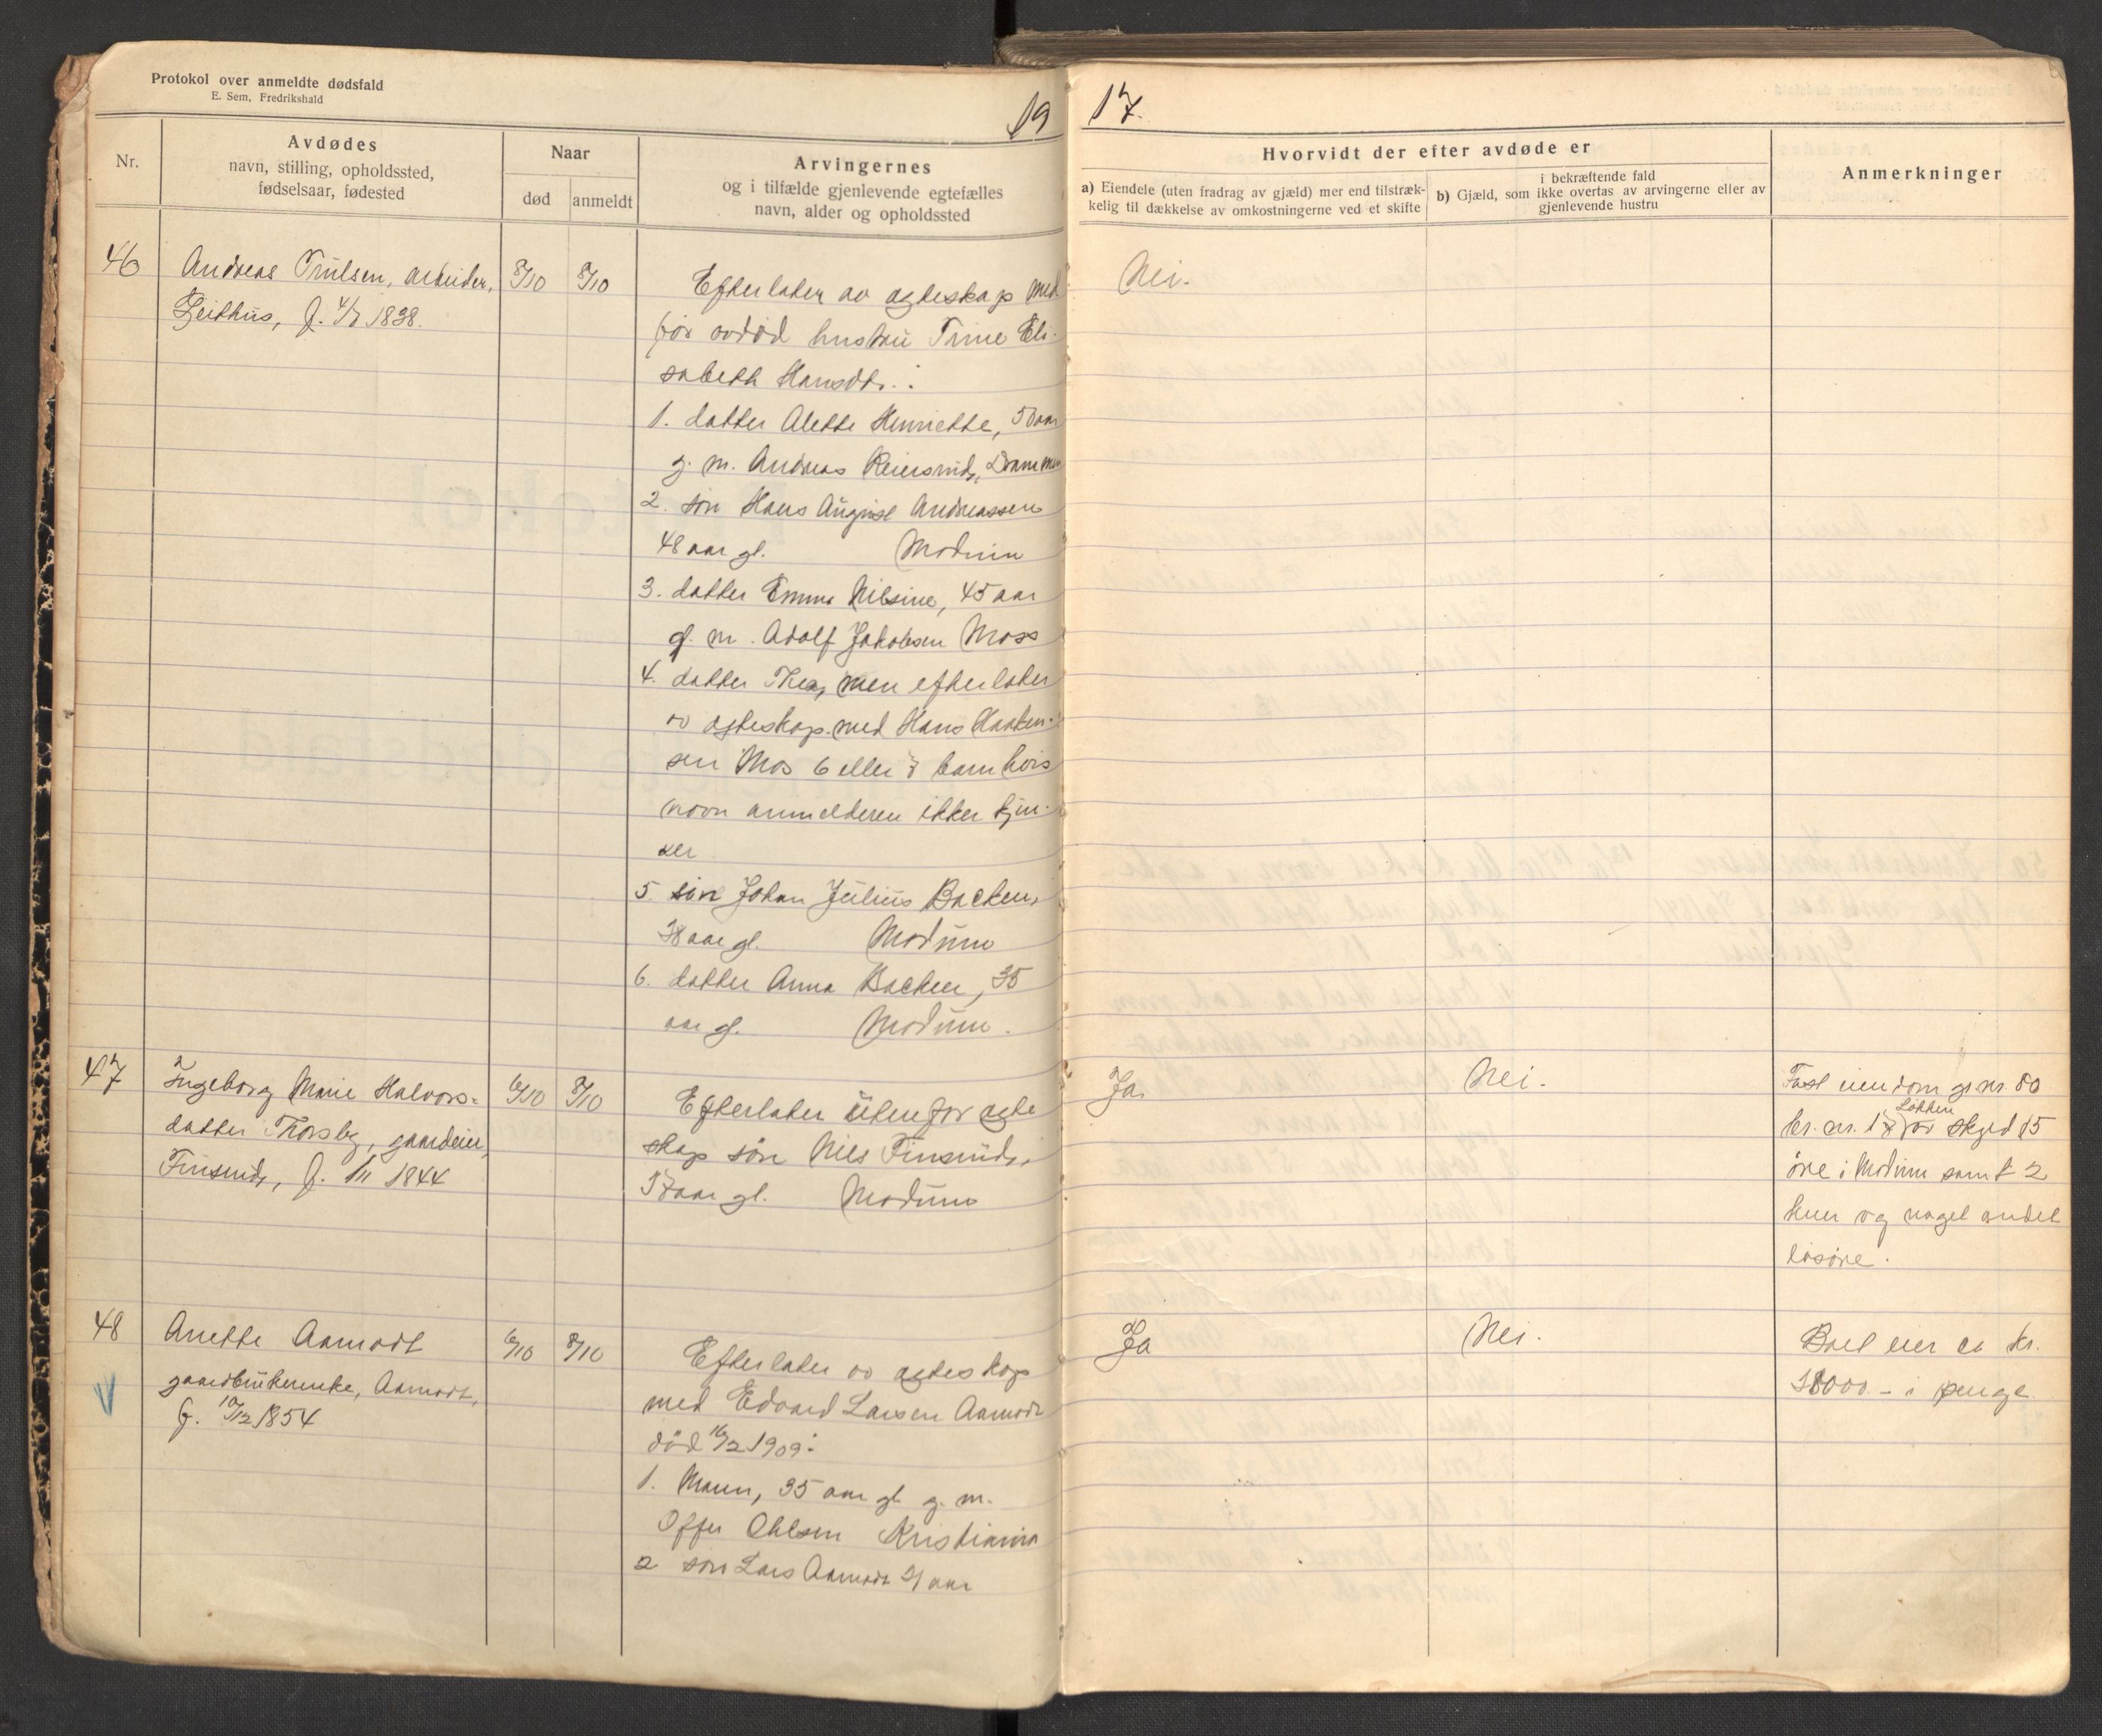 Protokol over anmeldte dødsfald
E. Sem, Fredrikshald
19 17.
Nr.
Avdødes
navn, stilling, opholdssted,
fødselsaar, fødested
Naar
død
anmeldt
Arvingernes
og i tilfælde gjenlevende egtefælles
navn, alder og opholdssted
Hvorvidt der efter avdøde er
a) Eiendele (uten fradrag av gjæld) mer end tilstræk-
kelig til dækkelse av omkostningerne ved et skifte
i bekræftende fald
b) Gjæld, som ikke overtas av arvingerne eller av
gjenlevende hustru
Anmerkninger
46
Andreas Trulsen, arbeider,
Geithus, f. 1838.
8/10
8/10
Efterlater av egteskap med
før avdød hustru Trine Eli-
sabeth Hansdtr.:
1. datter Alette Henriette, 50 aar
g. m. Andreas Reiersrud, Drammen
2. søn Hans August Andreassen
48 aar gl. Modum
3. datter Emma Nilsine, 45 aar
g. m. Adolf Jakobsen Moss
4. datter Thea, men efterlater
av egteskap med Hans Haaken-
sen Mos 6 eller barn hvis
navn anmelderen ikke kjen-
ner
5. søn Johan Julius Backen,
38 aar gl. Modum
6. datter Anna Backen, 35
aar gl. Modum.
Nei.
47
Ingeborg Marie Halvors-
datter Thorsby, gaardeier,
Finsrud, f. 1844
6/10
8/10
Efterlater utenfor egte
skap søn Nils Finsrud,
aar gl. Modum
Ja.
Nei.
Fast eiendom gr. nr. 80
br. nr. 18 Løkken av skyld 15
øre i Modum samt 2
kuer og noget andet
løsøre.
48
Anette Aamodt
gaardbrukerenke, Aamodt,
f. 10/12 1854
6/10
8/10
Efterlater av egteskap
med Edvard Larsen Aamodt
død 16/2 1909:
1. Maren, 35 aar gl. g. m.
Offer Ohlsen Kristiania
2 søn Lars Aamodt 31 aar
Ja
Nei.
Boet eier ca kr.
18000 - i penge